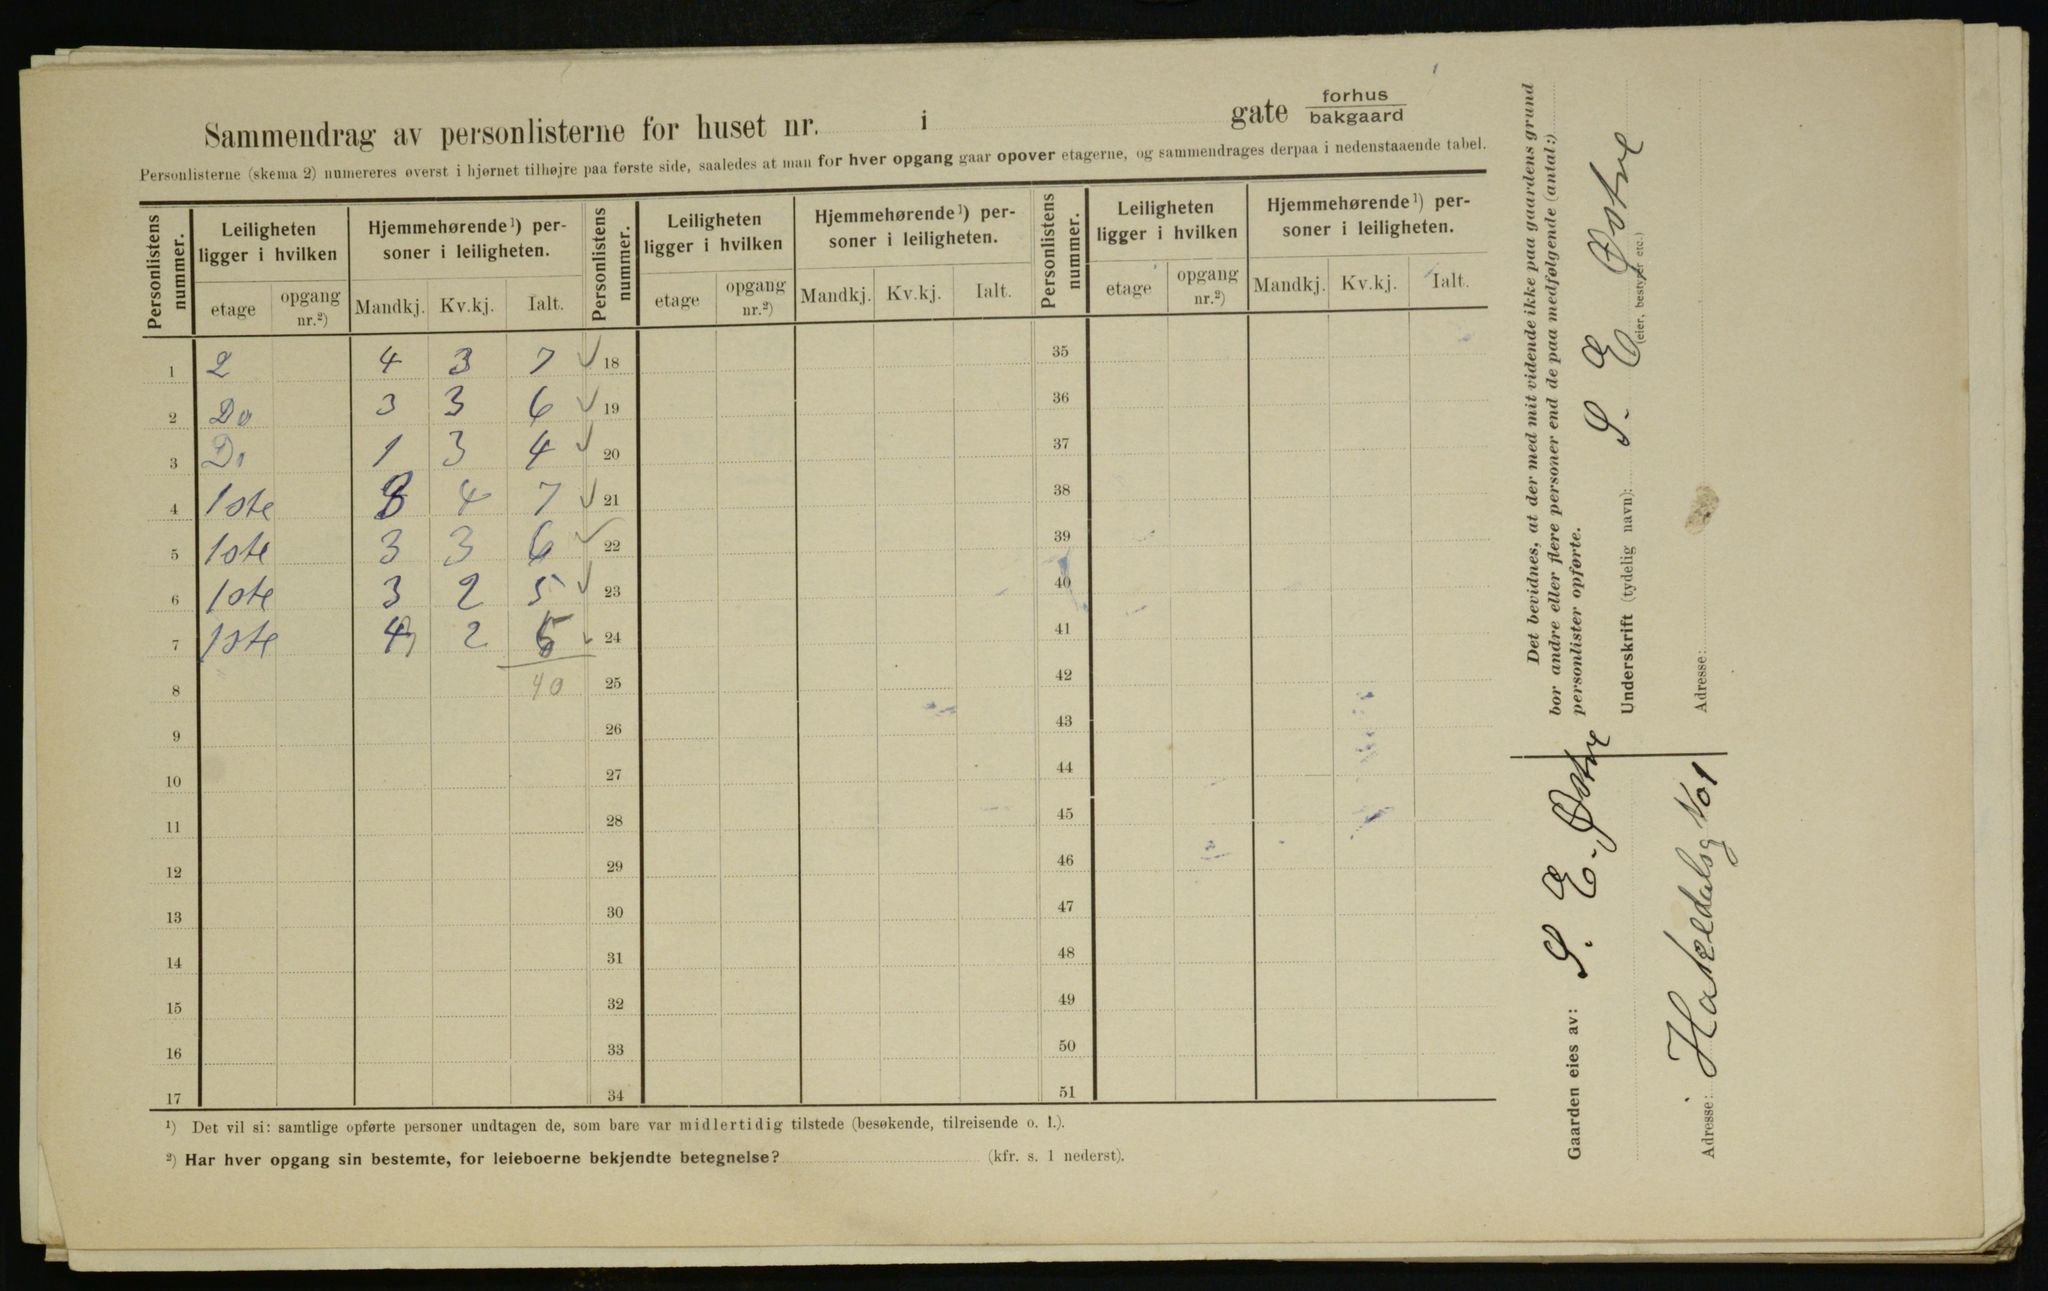 Sammendrag av personlisterne for huset nr. i gate forhus bakgaard
Personlisterne (skema 2) numereres øverst i hjørnet tilhøjre paa første side, saaledes at man for hver opgang gaar opover etagerne, og sammendrages derpaa i nedenstaaende tabel.
Personlistens nummer. Leiligheten ligger i hvilken Hjemmehørende¹) personer i leiligheten. Personlistens nummer. Leiligheten ligger i hvilken Hjemmehørende¹) personer i leiligheten. Personlistens nummer. Leiligheten ligger i hvilken Hjemmehørende¹) personer i leiligheten.
etage opgang nr.²) Mandkj. Kv.kj. Ialt. etage opgang nr.²) Mandkj. Kv.kj. Ialt. etage opgang nr.²) Mandkj. Kv.kj. Ialt.
1 2 4 3 7 18 35
2 Do 3 3 6 19 36
3 Do 1 3 4 20 37
4 1ste 4 7 21 38
5 1ste 3 3 6 22 39
6 1ste 3 2 5 23 40
7 1ste 2 5 24 41
8 40 25 42
9 26 43
10 27 44
11 28 45
12 29 46
13 30 47
14 31 48
15 32 49
16 33 50
17 34 51
¹) Det vil si: samtlige opførte personer undtagen de, som bare var midlertidig tilstede (besøkende, tilreisende o. l.).
²) Har hver opgang sin bestemte, for leieboerne bekjendte betegnelse? (kfr. s. 1 nederst).
Det bevidnes, at der med mit vidende ikke paa gaardens grund
bor andre eller flere personer end de paa medfølgende (antal:)
personlister opførte.
Underskrift (tydelig navn): S. E Østre
(eier, bestyrer etc.)
Adresse:
Gaarden eies av: S. E. Østre
Adresse: Hakedalsg No 1